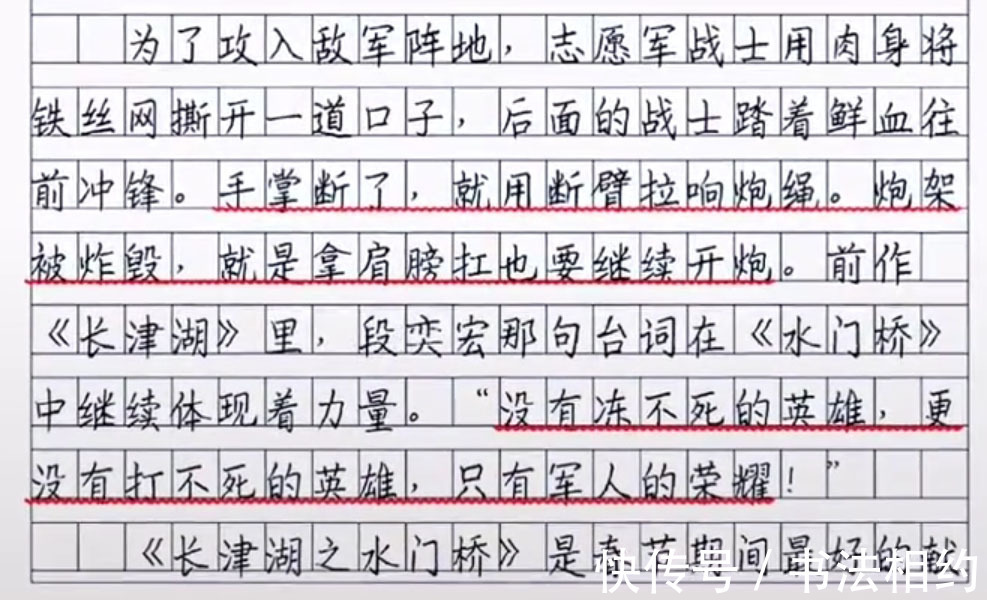 为了攻入敌军阵地，志愿军战士用肉身将
铁丝网撕开一道口子，后面的战士踏着鲜血往
前冲锋。手掌断了，就用断臂拉响炮绳。炮架
被炸毁，就是拿肩膀扛也要继续开炮。前作
《长津湖》里，段奕宏那句台词在《水门桥》
中继续体现着力量。“没有冻不死的英雄，更
没有打不死的英雄，只有军人的荣耀！”
《长津湖之水门桥》是春节期间最好的献
快传号 / 书法相约